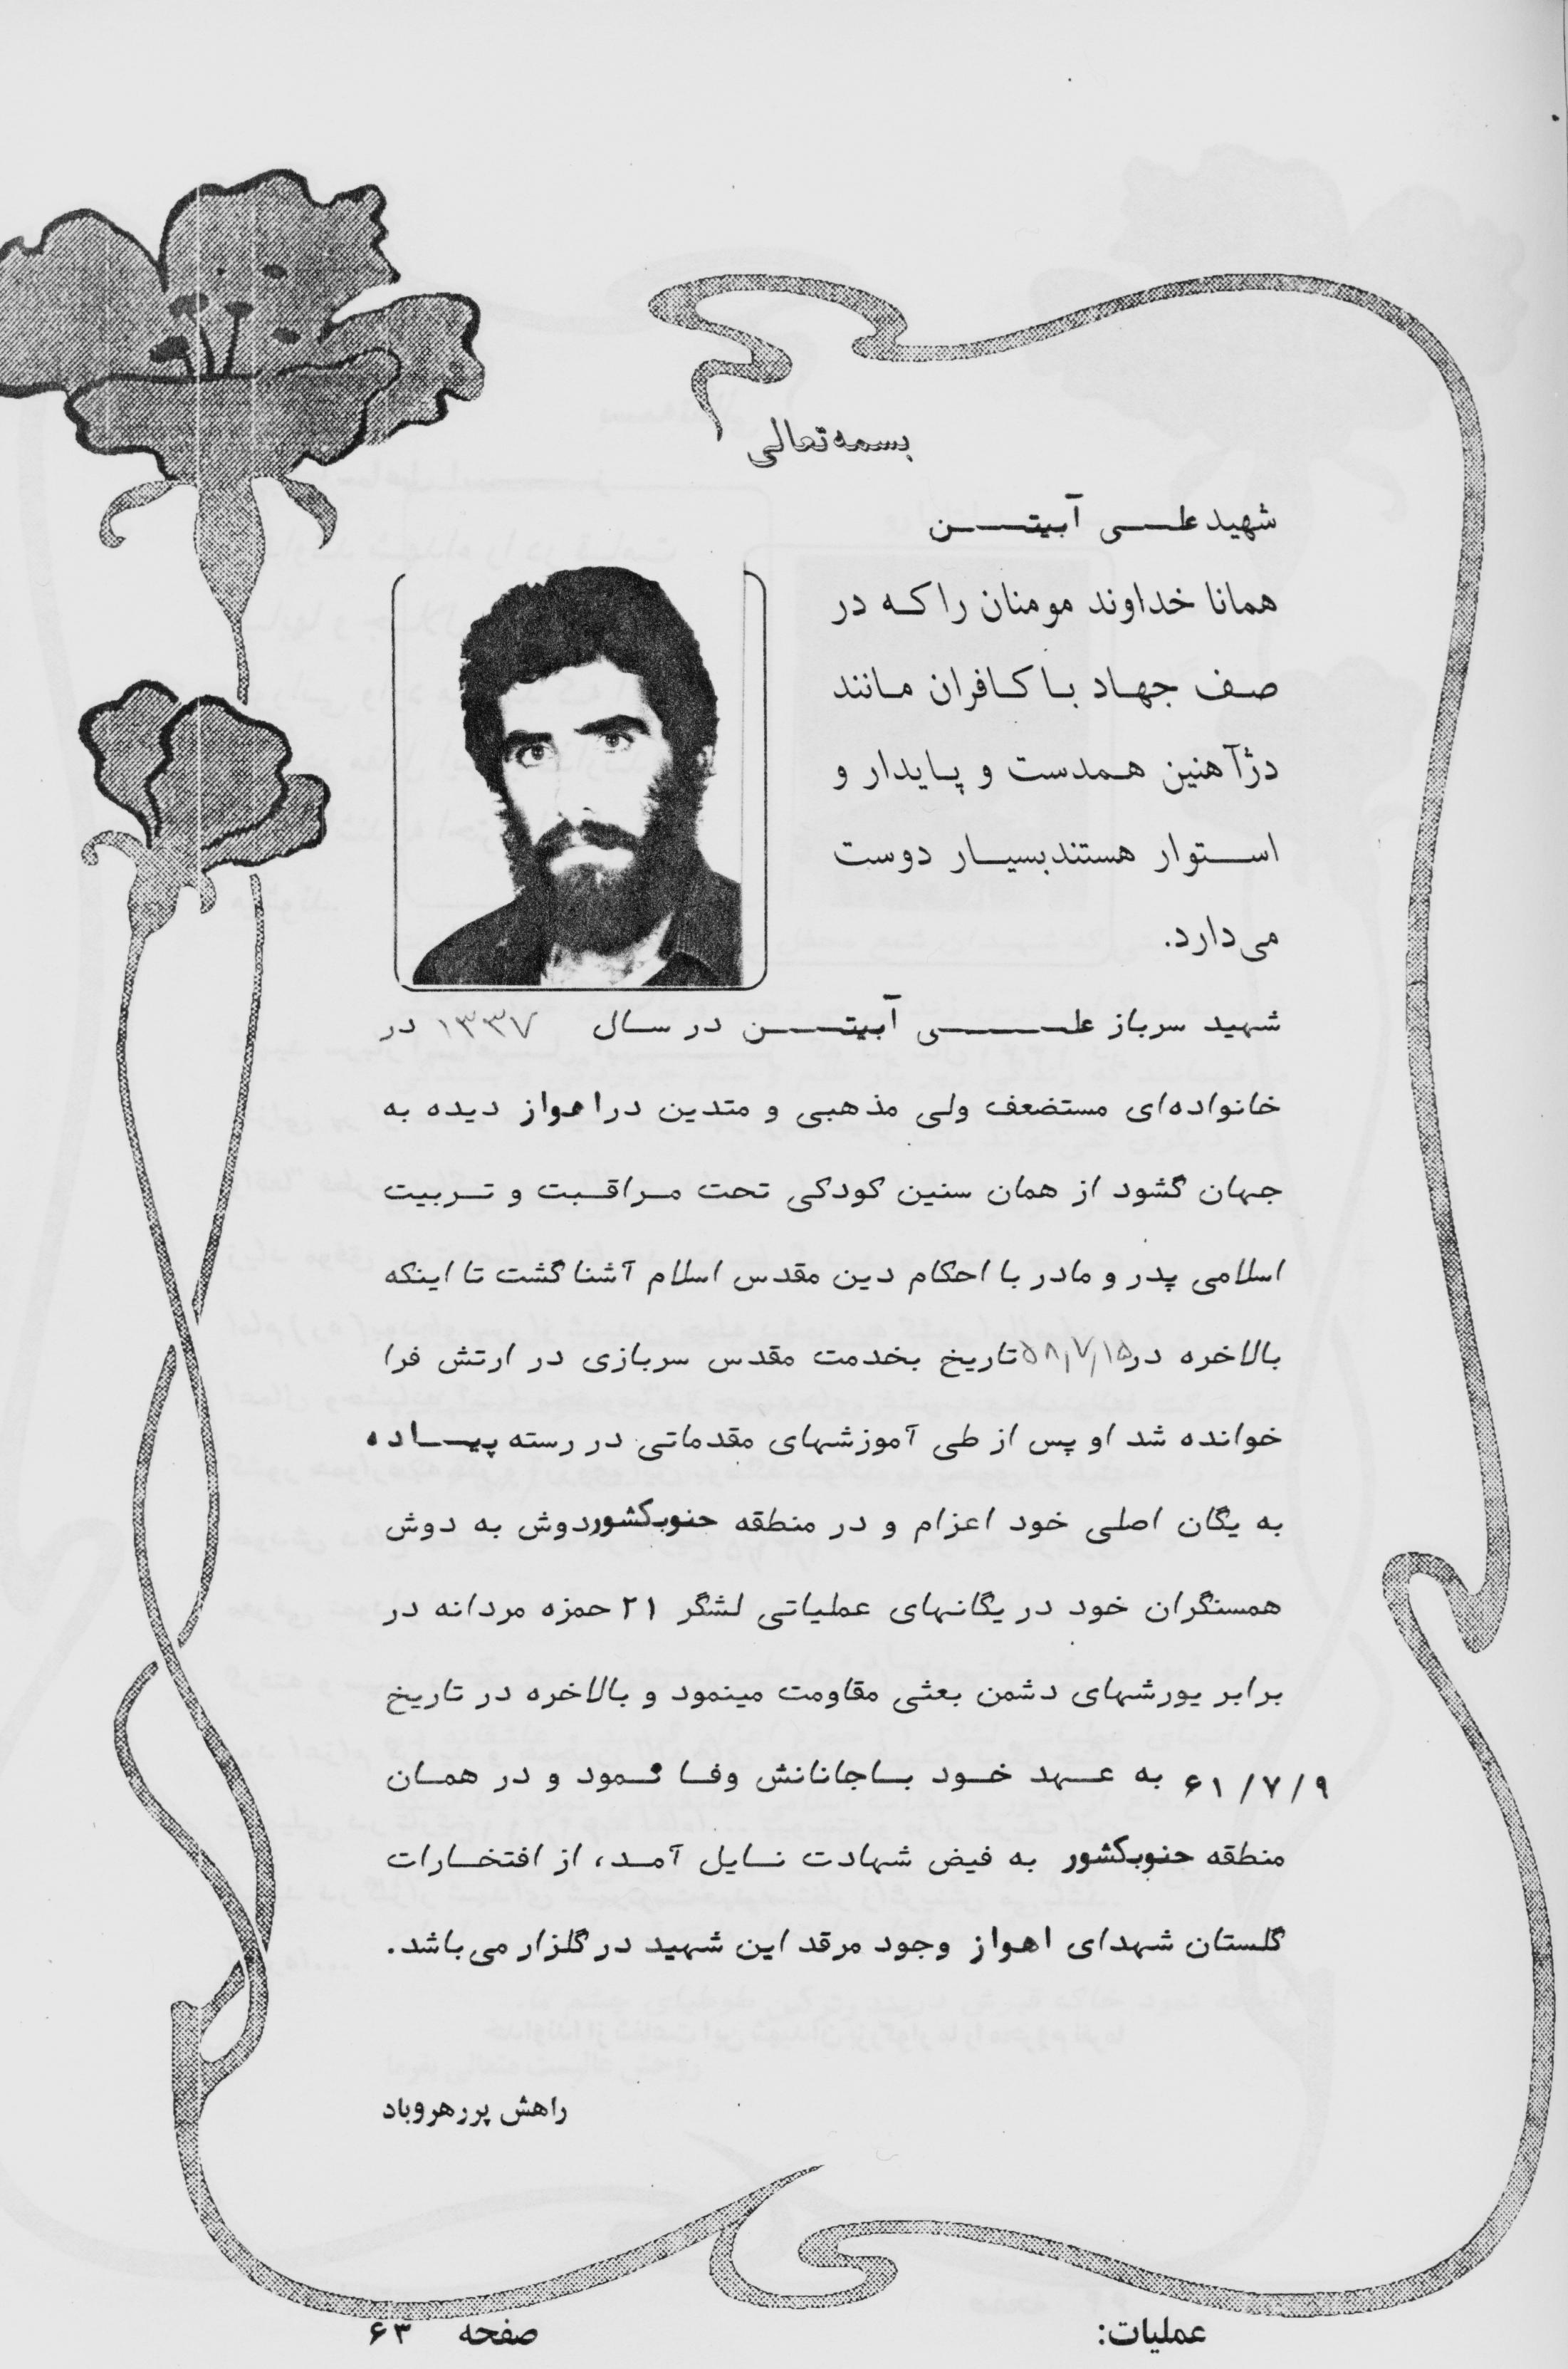 بسمه تعالی
شهید علی آبیتن
همانا خداوند مومنان را که در
صف جهاد با کافران مانند
دژآهنین همدست و پایدار و
استوار هستند بسیار دوست
می‌دارد.
شهید سرباز علی آبیتن در سال ۱۳۳۷ در
خانواده‌ای مستضعف ولی مذهبی و متدین در اهواز دیده به
جهان گشود از همان سنین کودکی تحت مراقبت و تربیت
اسلامی پدر و مادر با احکام دین مقدس اسلام آشنا گشت تا اینکه
بالاخره در ۵۸/۷/۱۵ تاریخ بخدمت مقدس سربازی در ارتش فرا
خوانده شد او پس از طی آموزشهای مقدماتی در رسته پیاده
به یگان اصلی خود اعزام و در منطقه جنوب کشور دوش به دوش
همسنگران خود در یگانهای عملیاتی لشگر ۲۱ حمزه مردانه در
برابر یورشهای دشمن بعثی مقاومت مینمود و بالاخره در تاریخ
۶۱/۷/۹ به عهد خود با جانانش وفا نمود و در همان
منطقه جنوب کشور به فیض شهادت نایل آمد، از افتخارات
گلستان شهدای اهواز وجود مرقد این شهید در گلزار می‌باشد.
راهش پررهروباد
عملیات: صفحه ۶۳